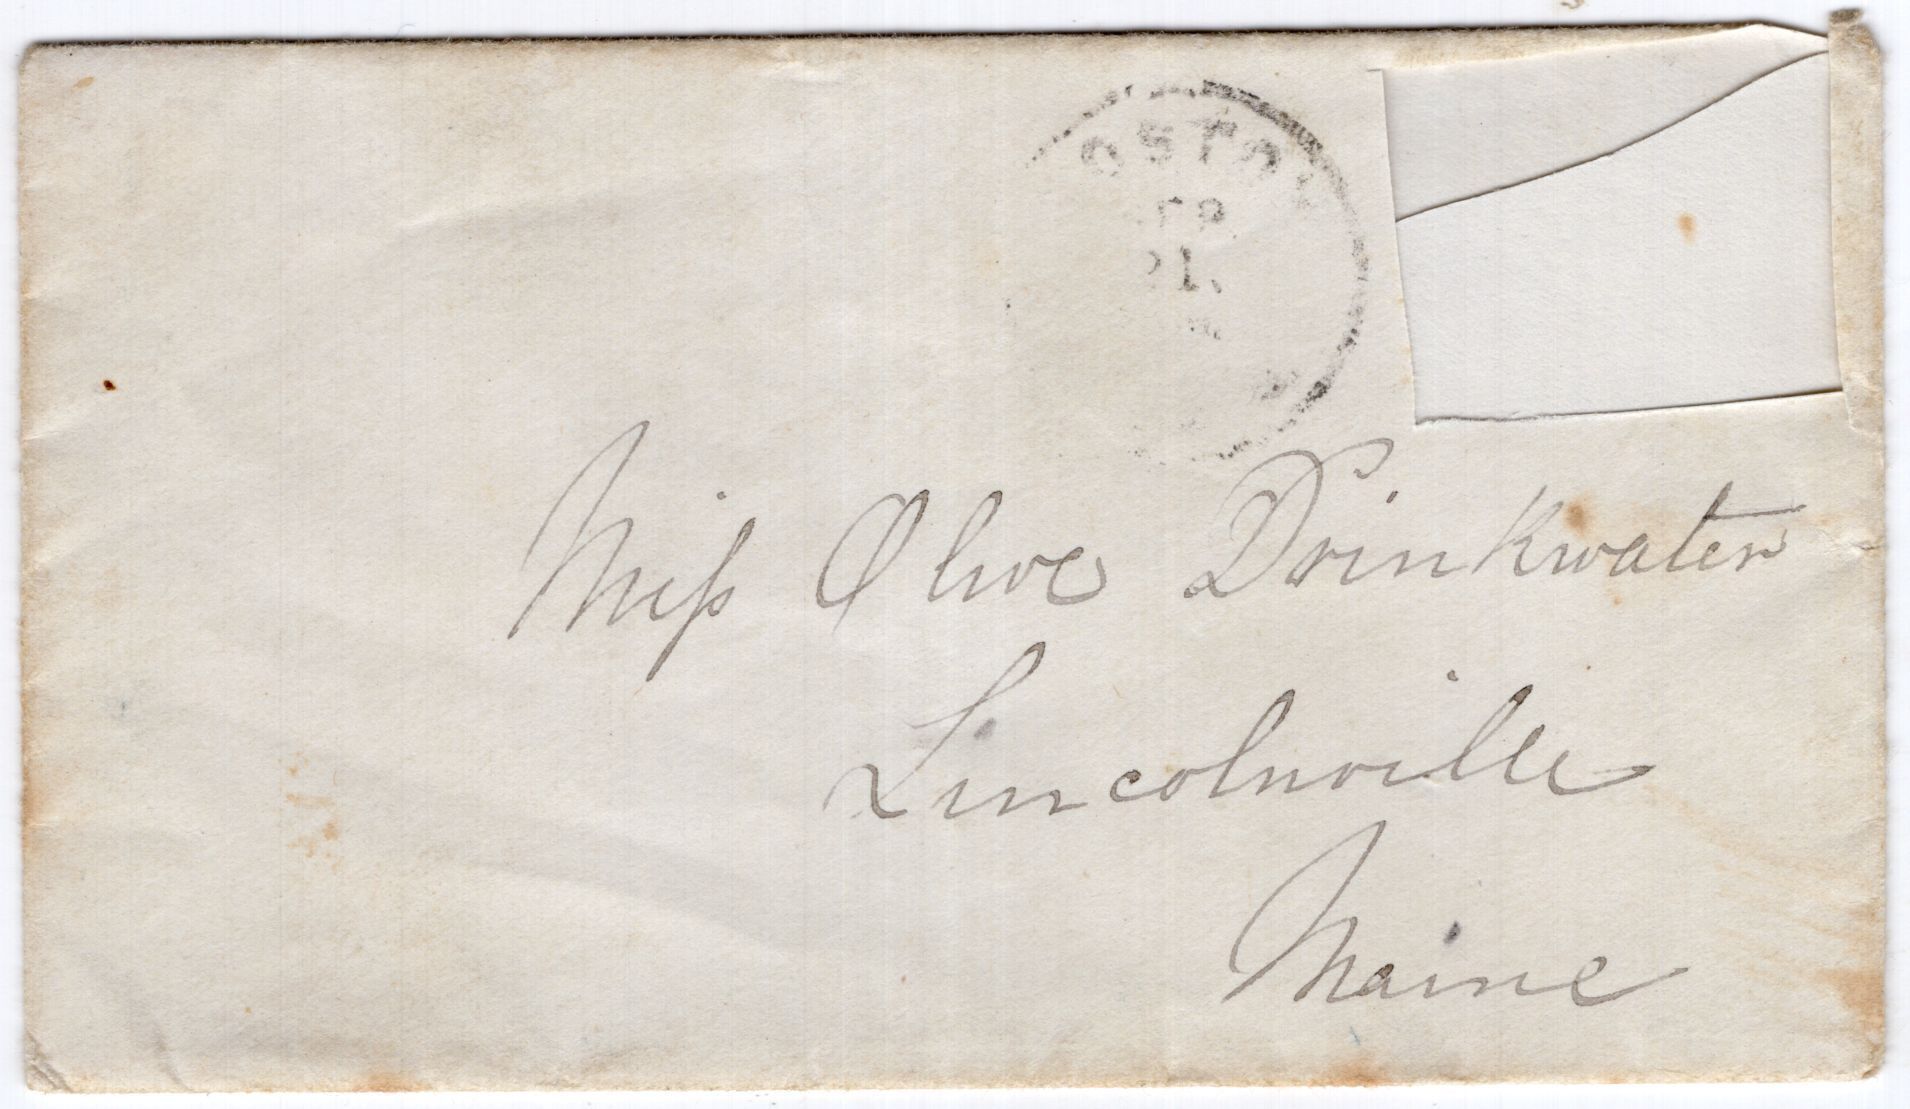 OSTON
21.
Miss Olive Drinkwater
Lincolnville
Maine